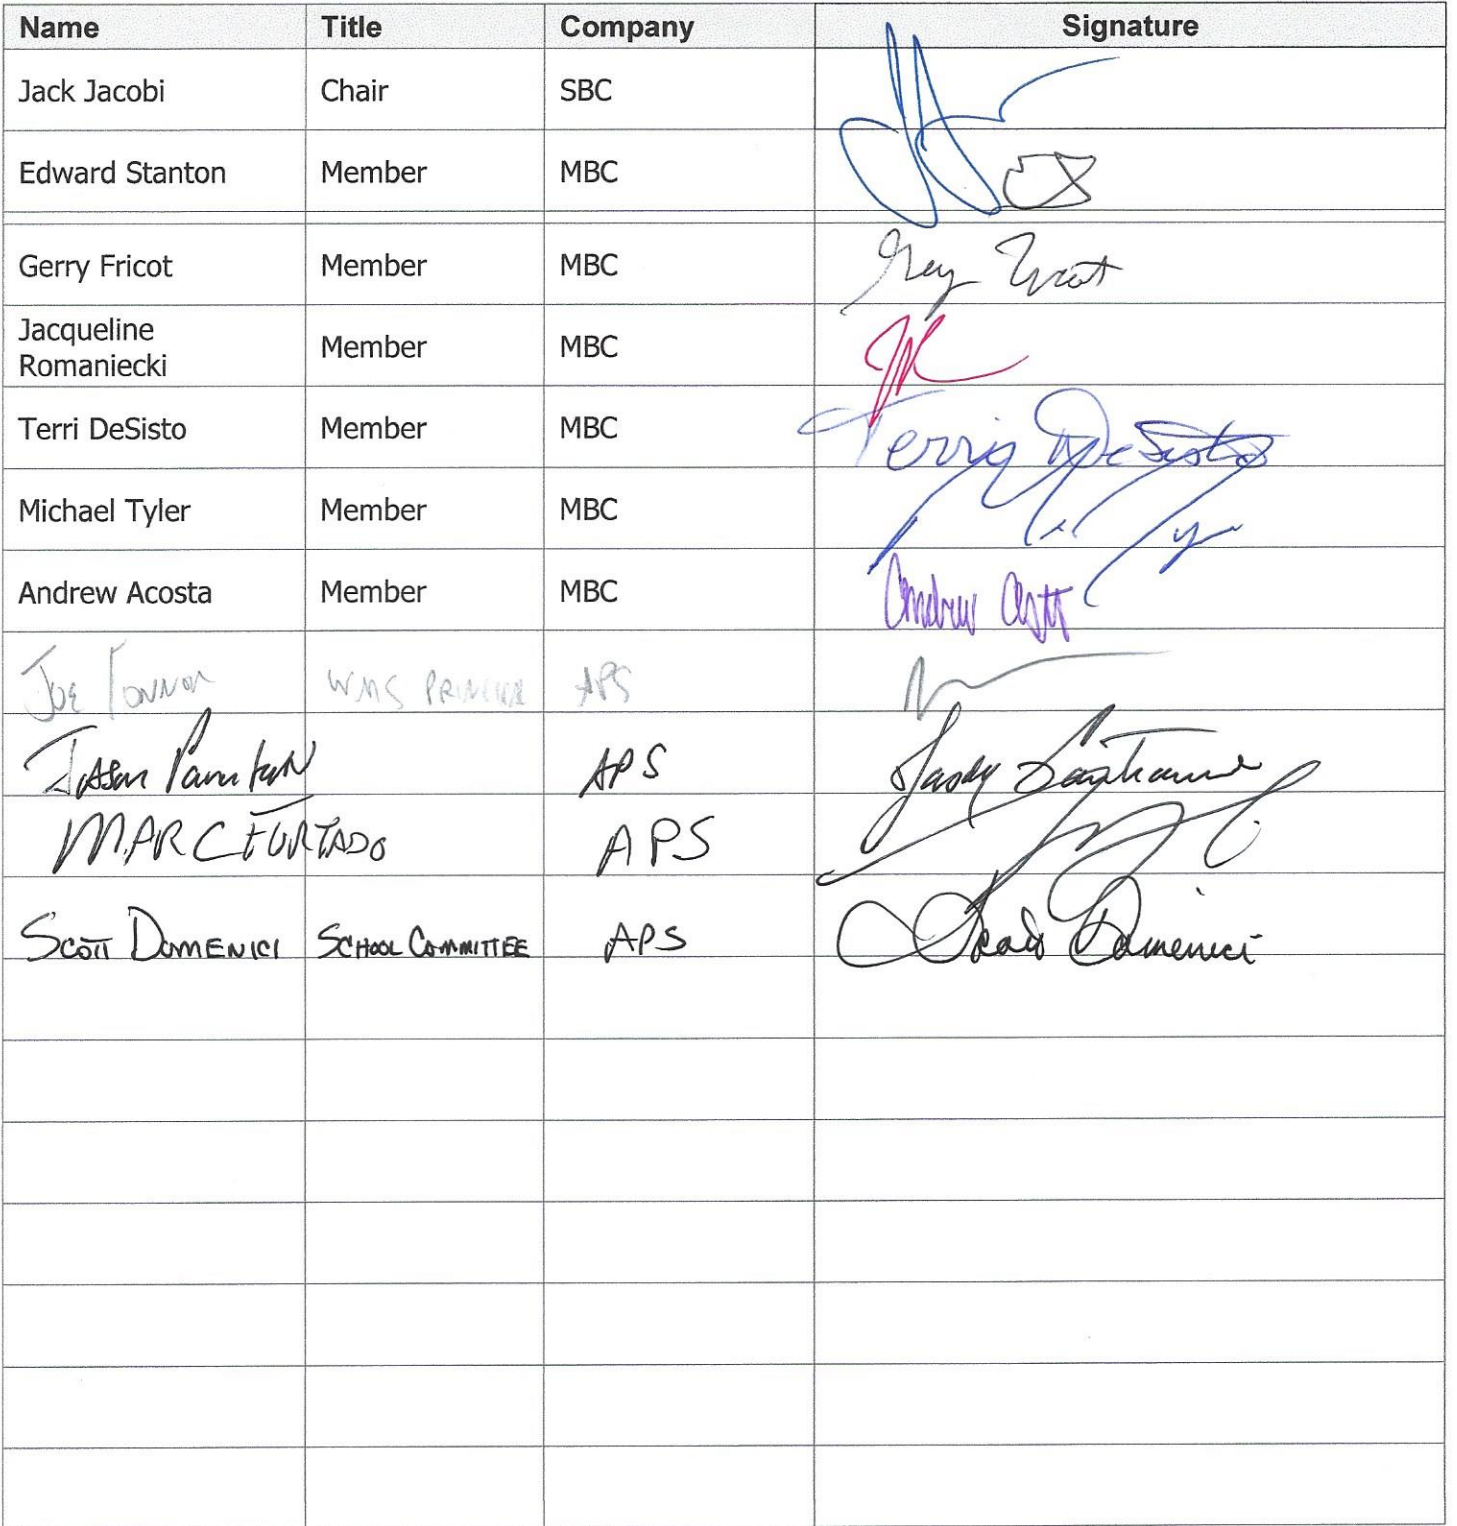 Name Title Company Signature
Jack Jacobi Chair SBC
Edward Stanton Member MBC
Gerry Fricot Member MBC
Jacqueline
Romaniecki Member MBC
Terri DeSisto Member MBC Terri DeSisto
Michael Tyler Member MBC
Andrew Acosta Member MBC Andrew
Joe WMS APS
Jason APS
MARC FURTADO APS
SCOTT DOMENICI SCHOOL COMMITTEE APS Domenici